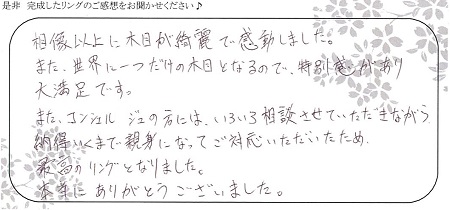 是非 完成したリングのご感想をお聞かせください♪
想像以上に木目が綺麗で感動しました。
また、世界に一つだけの木目となるので、特別感があり
大満足です。
また、コンシェルジュの方には、いろいろ相談させていただきながら
納得いくまで親身になってご対応いただいたため
最高のリングとなりました。
本当にありがとうございました。